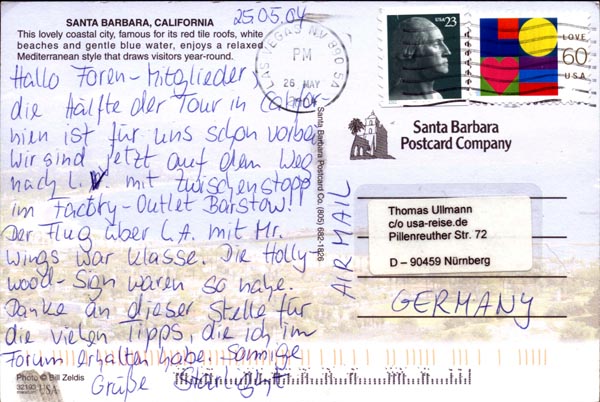 25.05.04
SANTA BARBARA, CALIFORNIA
This lovely coastal city, famous for its red tile roofs, white
beaches and gentle blue water, enjoys a relaxed
Mediterranean style that draws visitors year-round.
Hallo Foren-Mitglieder,
die Hälfte der Tour in Califor-
nien ist für uns schon vorbei.
Wir sind jetzt auf dem Weg
nach L.V. mit Zwischenstopp
im Factory-Outlet Barstow.
Der Flug über L.A. mit Mr.
Wings war klasse. Die Holly-
wood-Sign waren so nahe.
Danke an dieser Stelle für
die vielen Tipps, die ich im
Forum erhalten habe. Sonnige
Grüße Starlight
Photo © Bill Zeldis
LAS VEGAS NV 890
PM
26 MAY
USA 23
LOVE
60
USA
Santa Barbara Postcard Co. (805) 682-1826
Santa Barbara
Postcard Company
AIR MAIL
Thomas Ullmann
c/o usa-reise.de
Pillenreuther Str. 72
D – 90459 Nürnberg
GERMANY